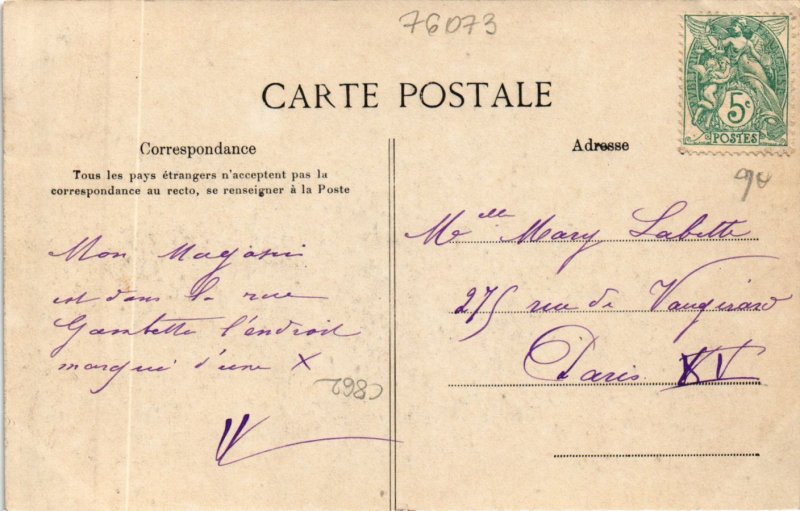 76073
CARTE POSTALE
Correspondance
Tous les pays étrangers n'acceptent pas la
correspondance au recto, se renseigner à la Poste
Mon Magasin
est dans la rue
Gambetta l'endroit
marqué d'une X
Adresse
5c
POSTES
90
Melle Mary Labette
275 rue de Vaugirard
Paris XV